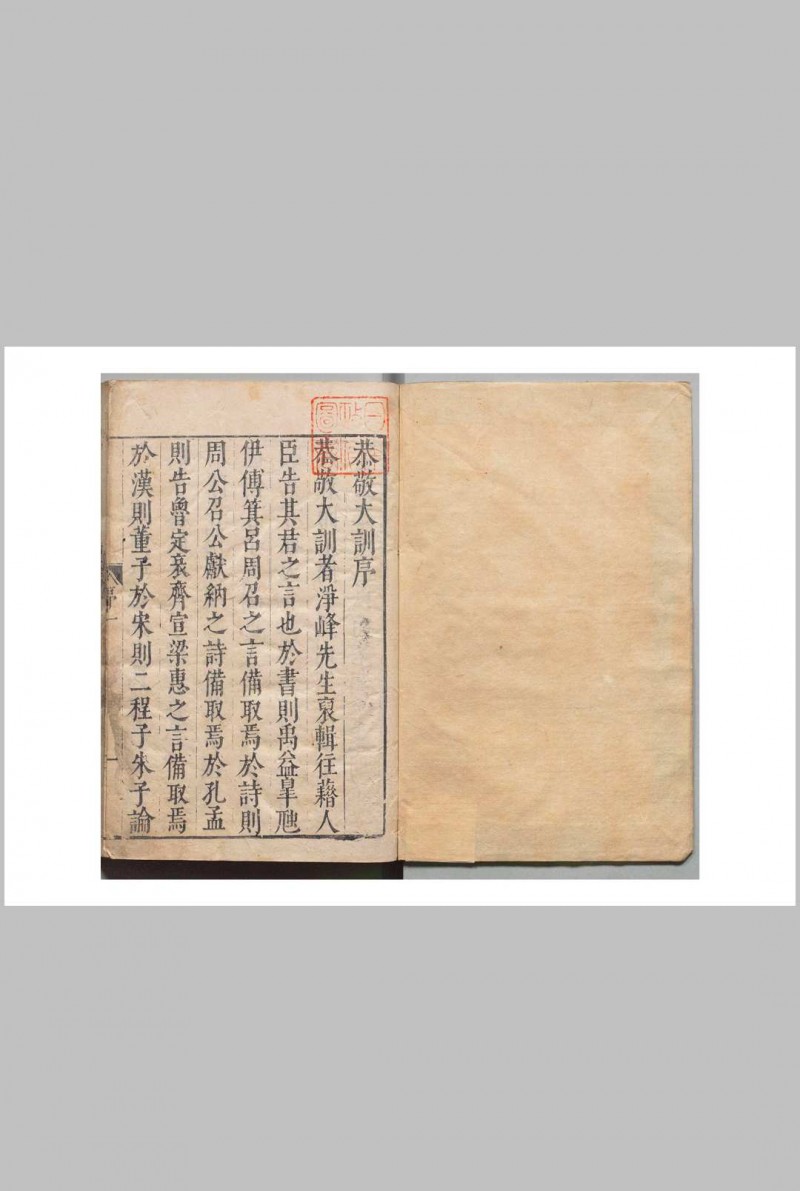 恭敬大訓序
恭敬大訓者淨峰先生裒輯往藉人
臣告其君之言也於書則禹益臯虺
伊傅箕呂周召之言備取焉於詩則
周公召公獻納之詩備取焉於孔孟
則告魯定哀齊宣梁惠之言備取焉
於漢則董子於宋則二程子朱子論
序
一